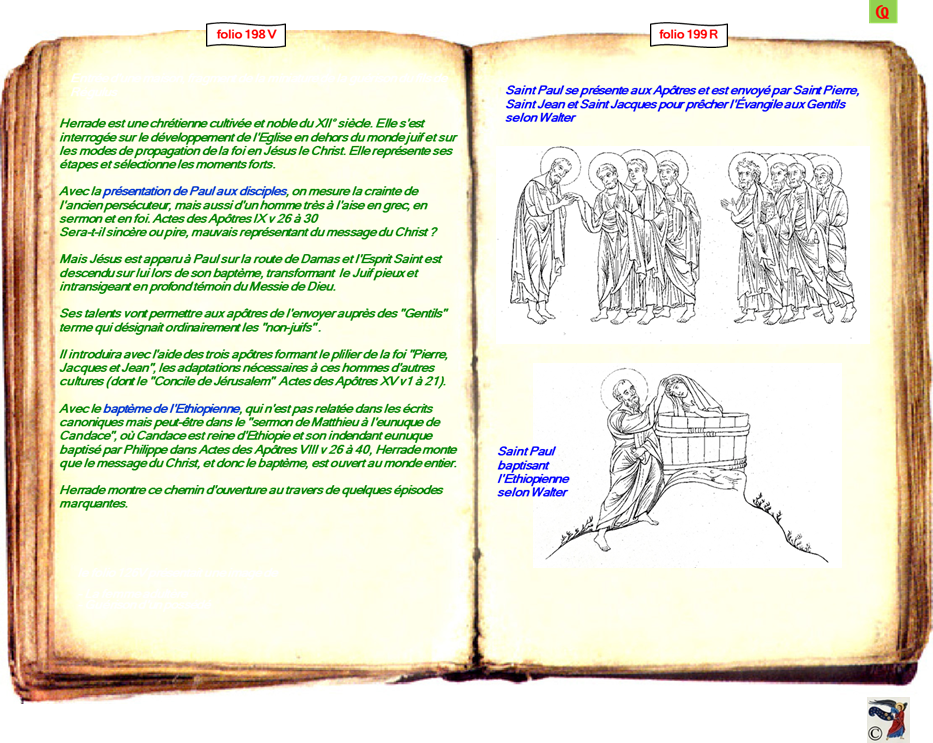 folio 198 V
Herrade est une chrétienne cultivée et noble du XII° siècle. Elle s'est
interrogée sur le développement de l'Eglise en dehors du monde juif et sur
les modes de propagation de la foi en Jésus le Christ. Elle représente ses
étapes et sélectionne les moments forts.
Avec la présentation de Paul aux disciples, on mesure la crainte de
l'ancien persécuteur, mais aussi d'un homme très à l'aise en grec, en
sermon et en foi. Actes des Apôtres IX v 26 à 30
Sera-t-il sincère ou pire, mauvais représentant du message du Christ ?
Mais Jésus est apparu à Paul sur la route de Damas et l'Esprit Saint est
descendu sur lui lors de son baptème, transformant le Juif pieux et
intransigeant en profond témoin du Messie de Dieu.
Ses talents vont permettre aux apôtres de l'envoyer auprès des "Gentils"
terme qui désignait ordinairement les "non-juifs" .
Il introduira avec l'aide des trois apôtres formant le plilier de la foi "Pierre,
Jacques et Jean", les adaptations nécessaires à ces hommes d'autres
cultures (dont le "Concile de Jérusalem" Actes des Apôtres XV v1 à 21).
Avec le baptème de l'Ethiopienne, qui n'est pas relatée dans les écrits
canoniques mais peut-être dans le "sermon de Matthieu à l'eunuque de
Candace", où Candace est reine d'Ethiopie et son indendant eunuque
baptisé par Philippe dans Actes des Apôtres VIII v 26 à 40, Herrade monte
que le message du Christ, et donc le baptème, est ouvert au monde entier.
Herrade montre ce chemin d'ouverture au travers de quelques épisodes
marquantes.
folio 199 R
Saint Paul se présente aux Apôtres et est envoyé par Saint Pierre,
Saint Jean et Saint Jacques pour prêcher l'Évangile aux Gentils
selon Walter
Saint Paul
baptisant
l'Éthiopienne
selon Walter
©